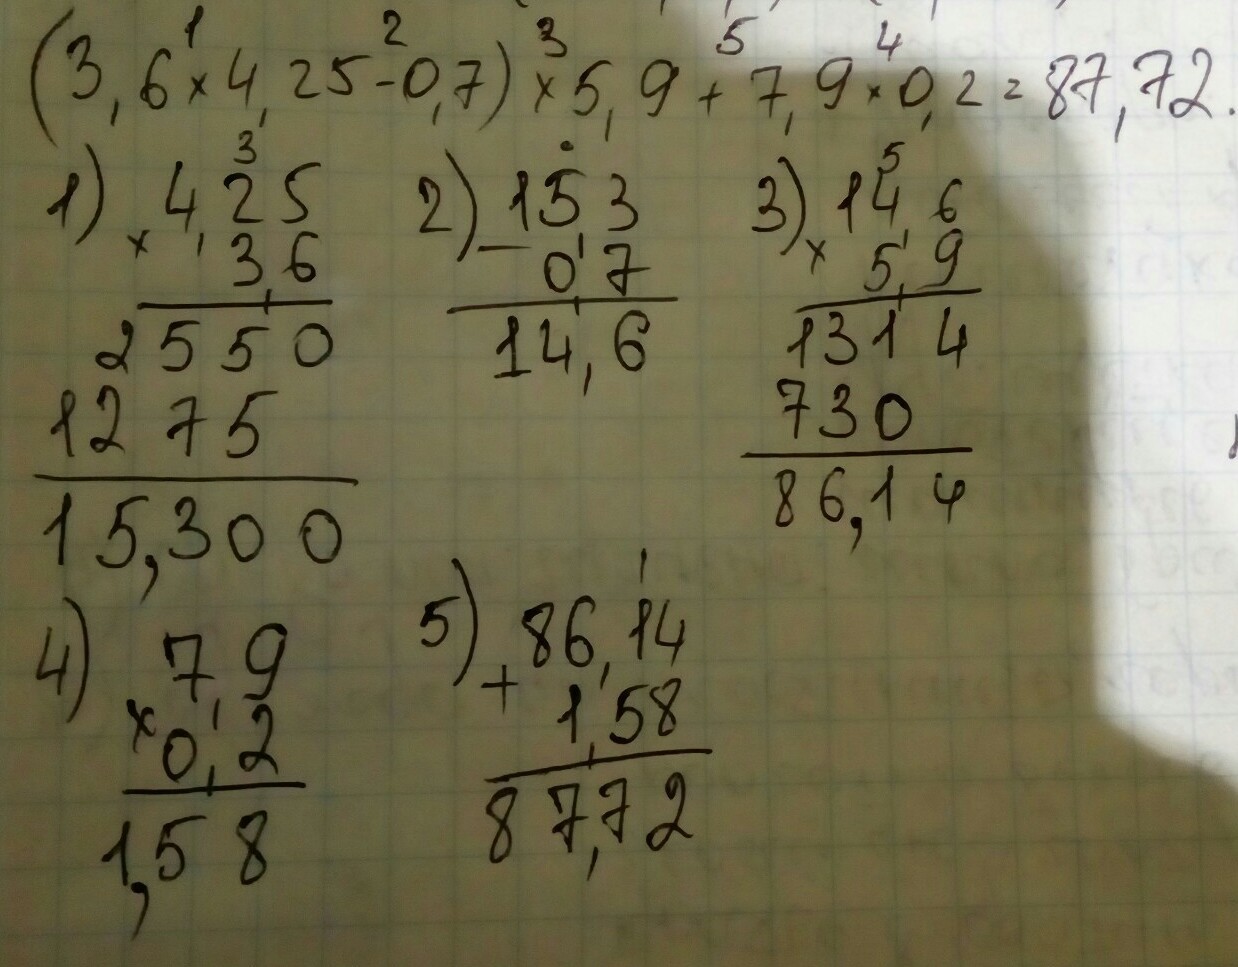 1 2 3 5 4
(3,6×4,25-0,7)×5,9+7,9×0,2=87,72.
3 5
1) 4,25 2) 15,3 3) 14,6
× 3,6 - 0,7 × 5,9
2550 14,6 1314
1275 730
15,300 86,14
1
4) 7,9 5) 86,14
× 0,2 + 1,58
1,58 87,72